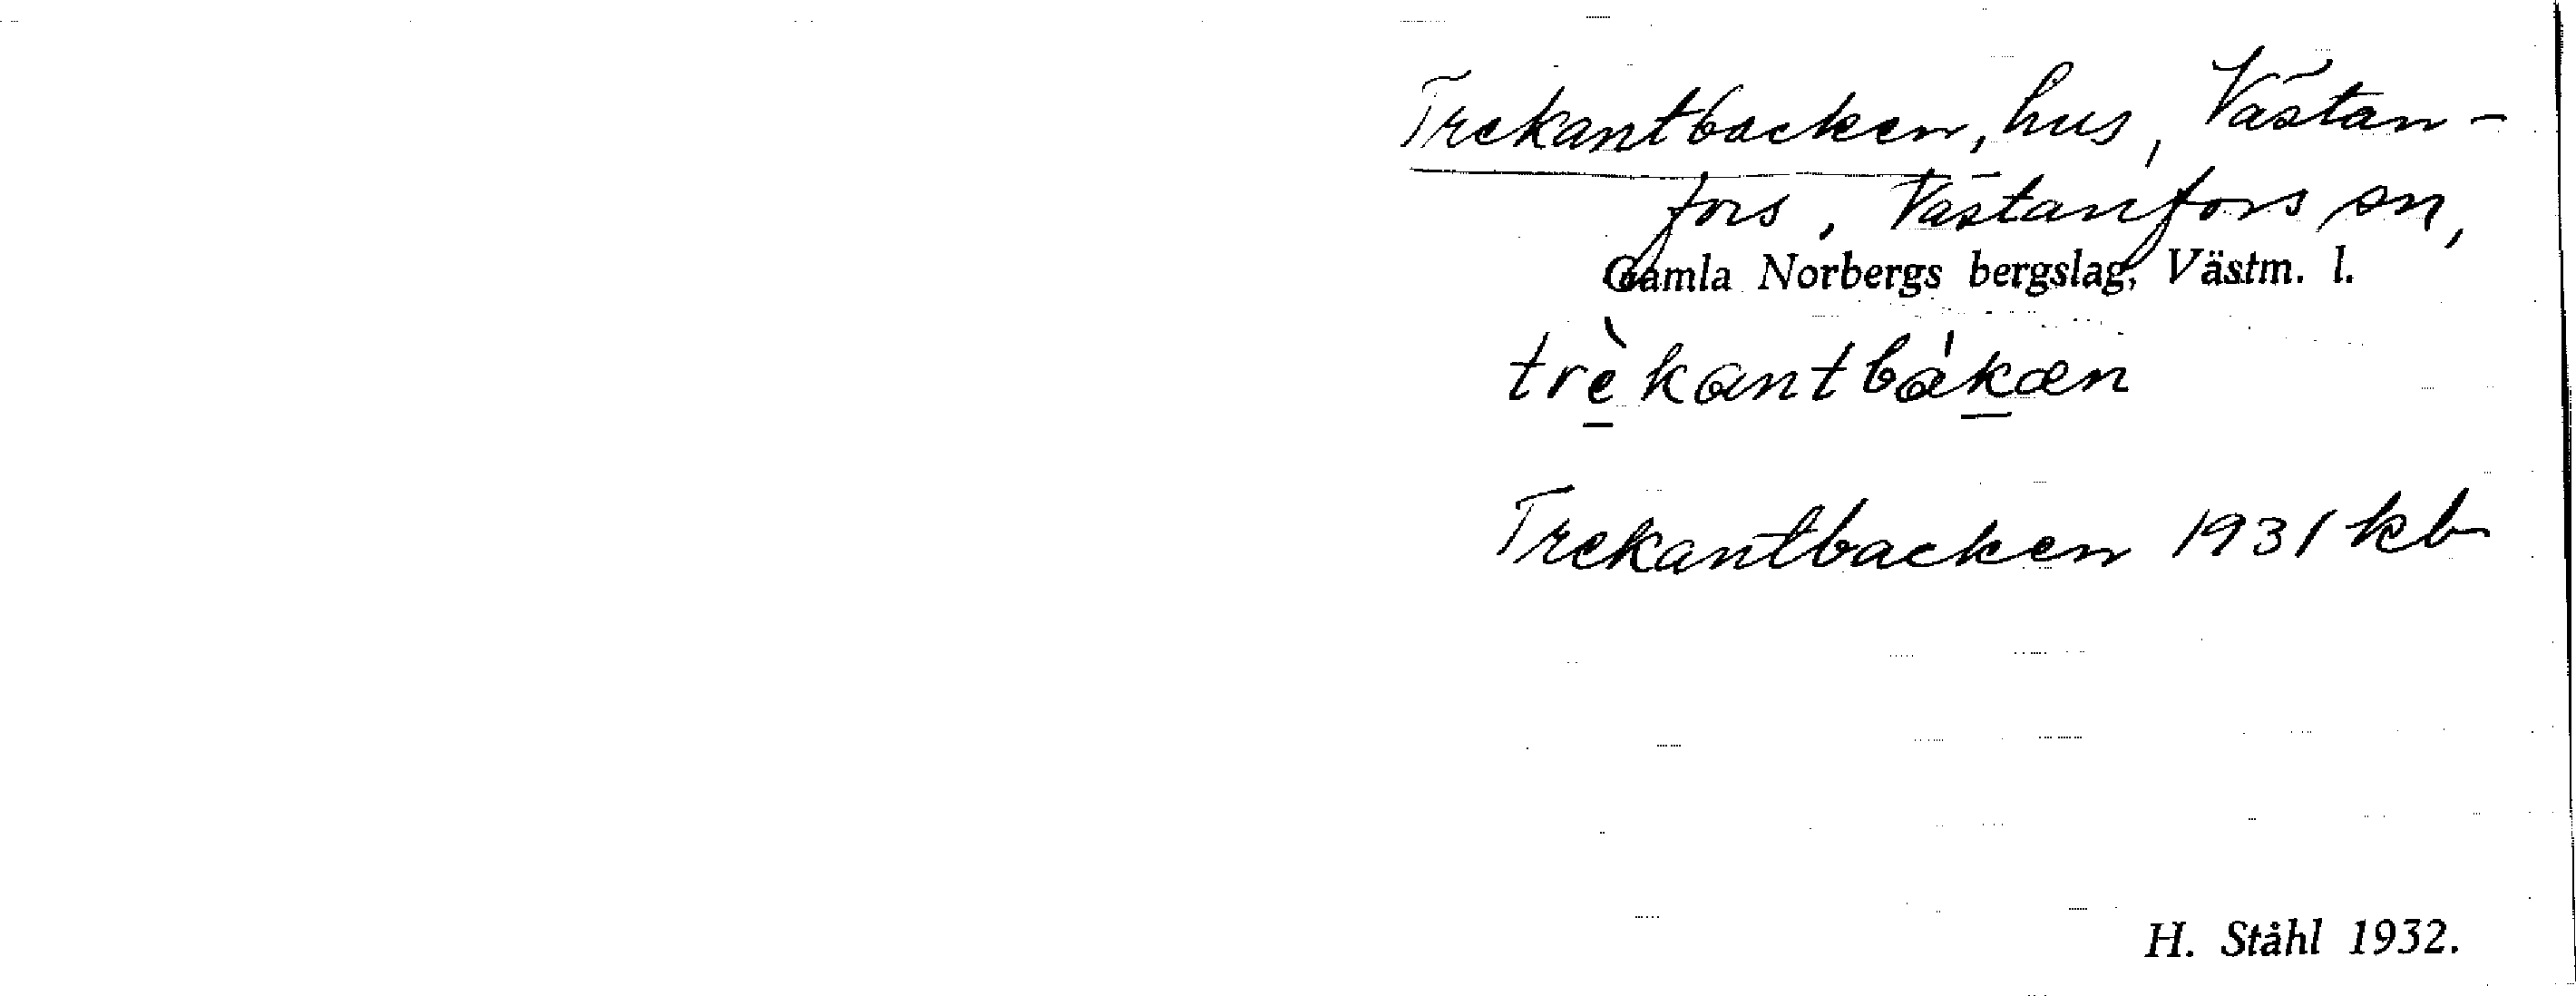 Trekantbacken, hus, Västan-
fors, Västanfors sn,
Gamla Norbergs bergslag, Västm. l.
trè̠kantbák̠æn
Trekantbacken 1931 kb
H. Ståhl 1932.